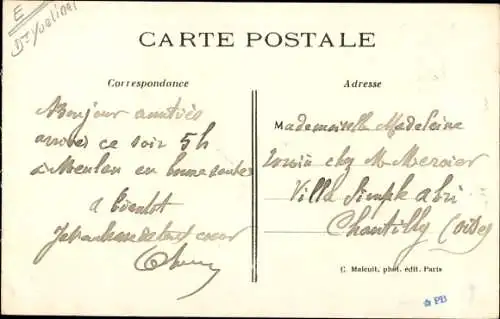 E
Dt Yvelines
CARTE POSTALE
Correspondance
Adresse
Bonjour amitiés
arrivés ce soir 5h
à Meulan en bonne santée
a bientot
Je de tout coeur
Mademoiselle Madeleine
chez M Mercier
Villa Simple abri
Chantilly (Oise)
C. Maleuit, phot. édit. Paris
PB